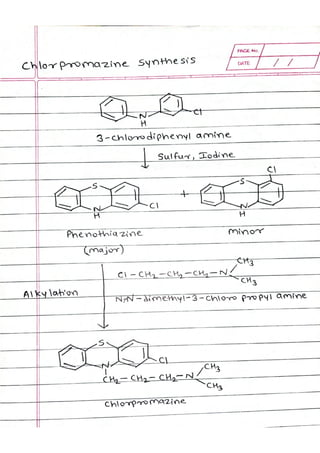 PAGE No.
DATE / /
Chlorpromazine Synthesis
N
H
Cl
3-chlorodiphenyl amine
Sulfur, Iodine
S
N
H
Cl
+
Cl
S
N
H
Phenothiazine
(major)
minor
Cl-CH2-CH2-CH2-N
CH3
CH3
Alkylation
N,N-dimethyl-3-chloro propyl amine
S
N
Cl
CH2-CH2-CH2-N
CH3
CH3
chlorpromazine